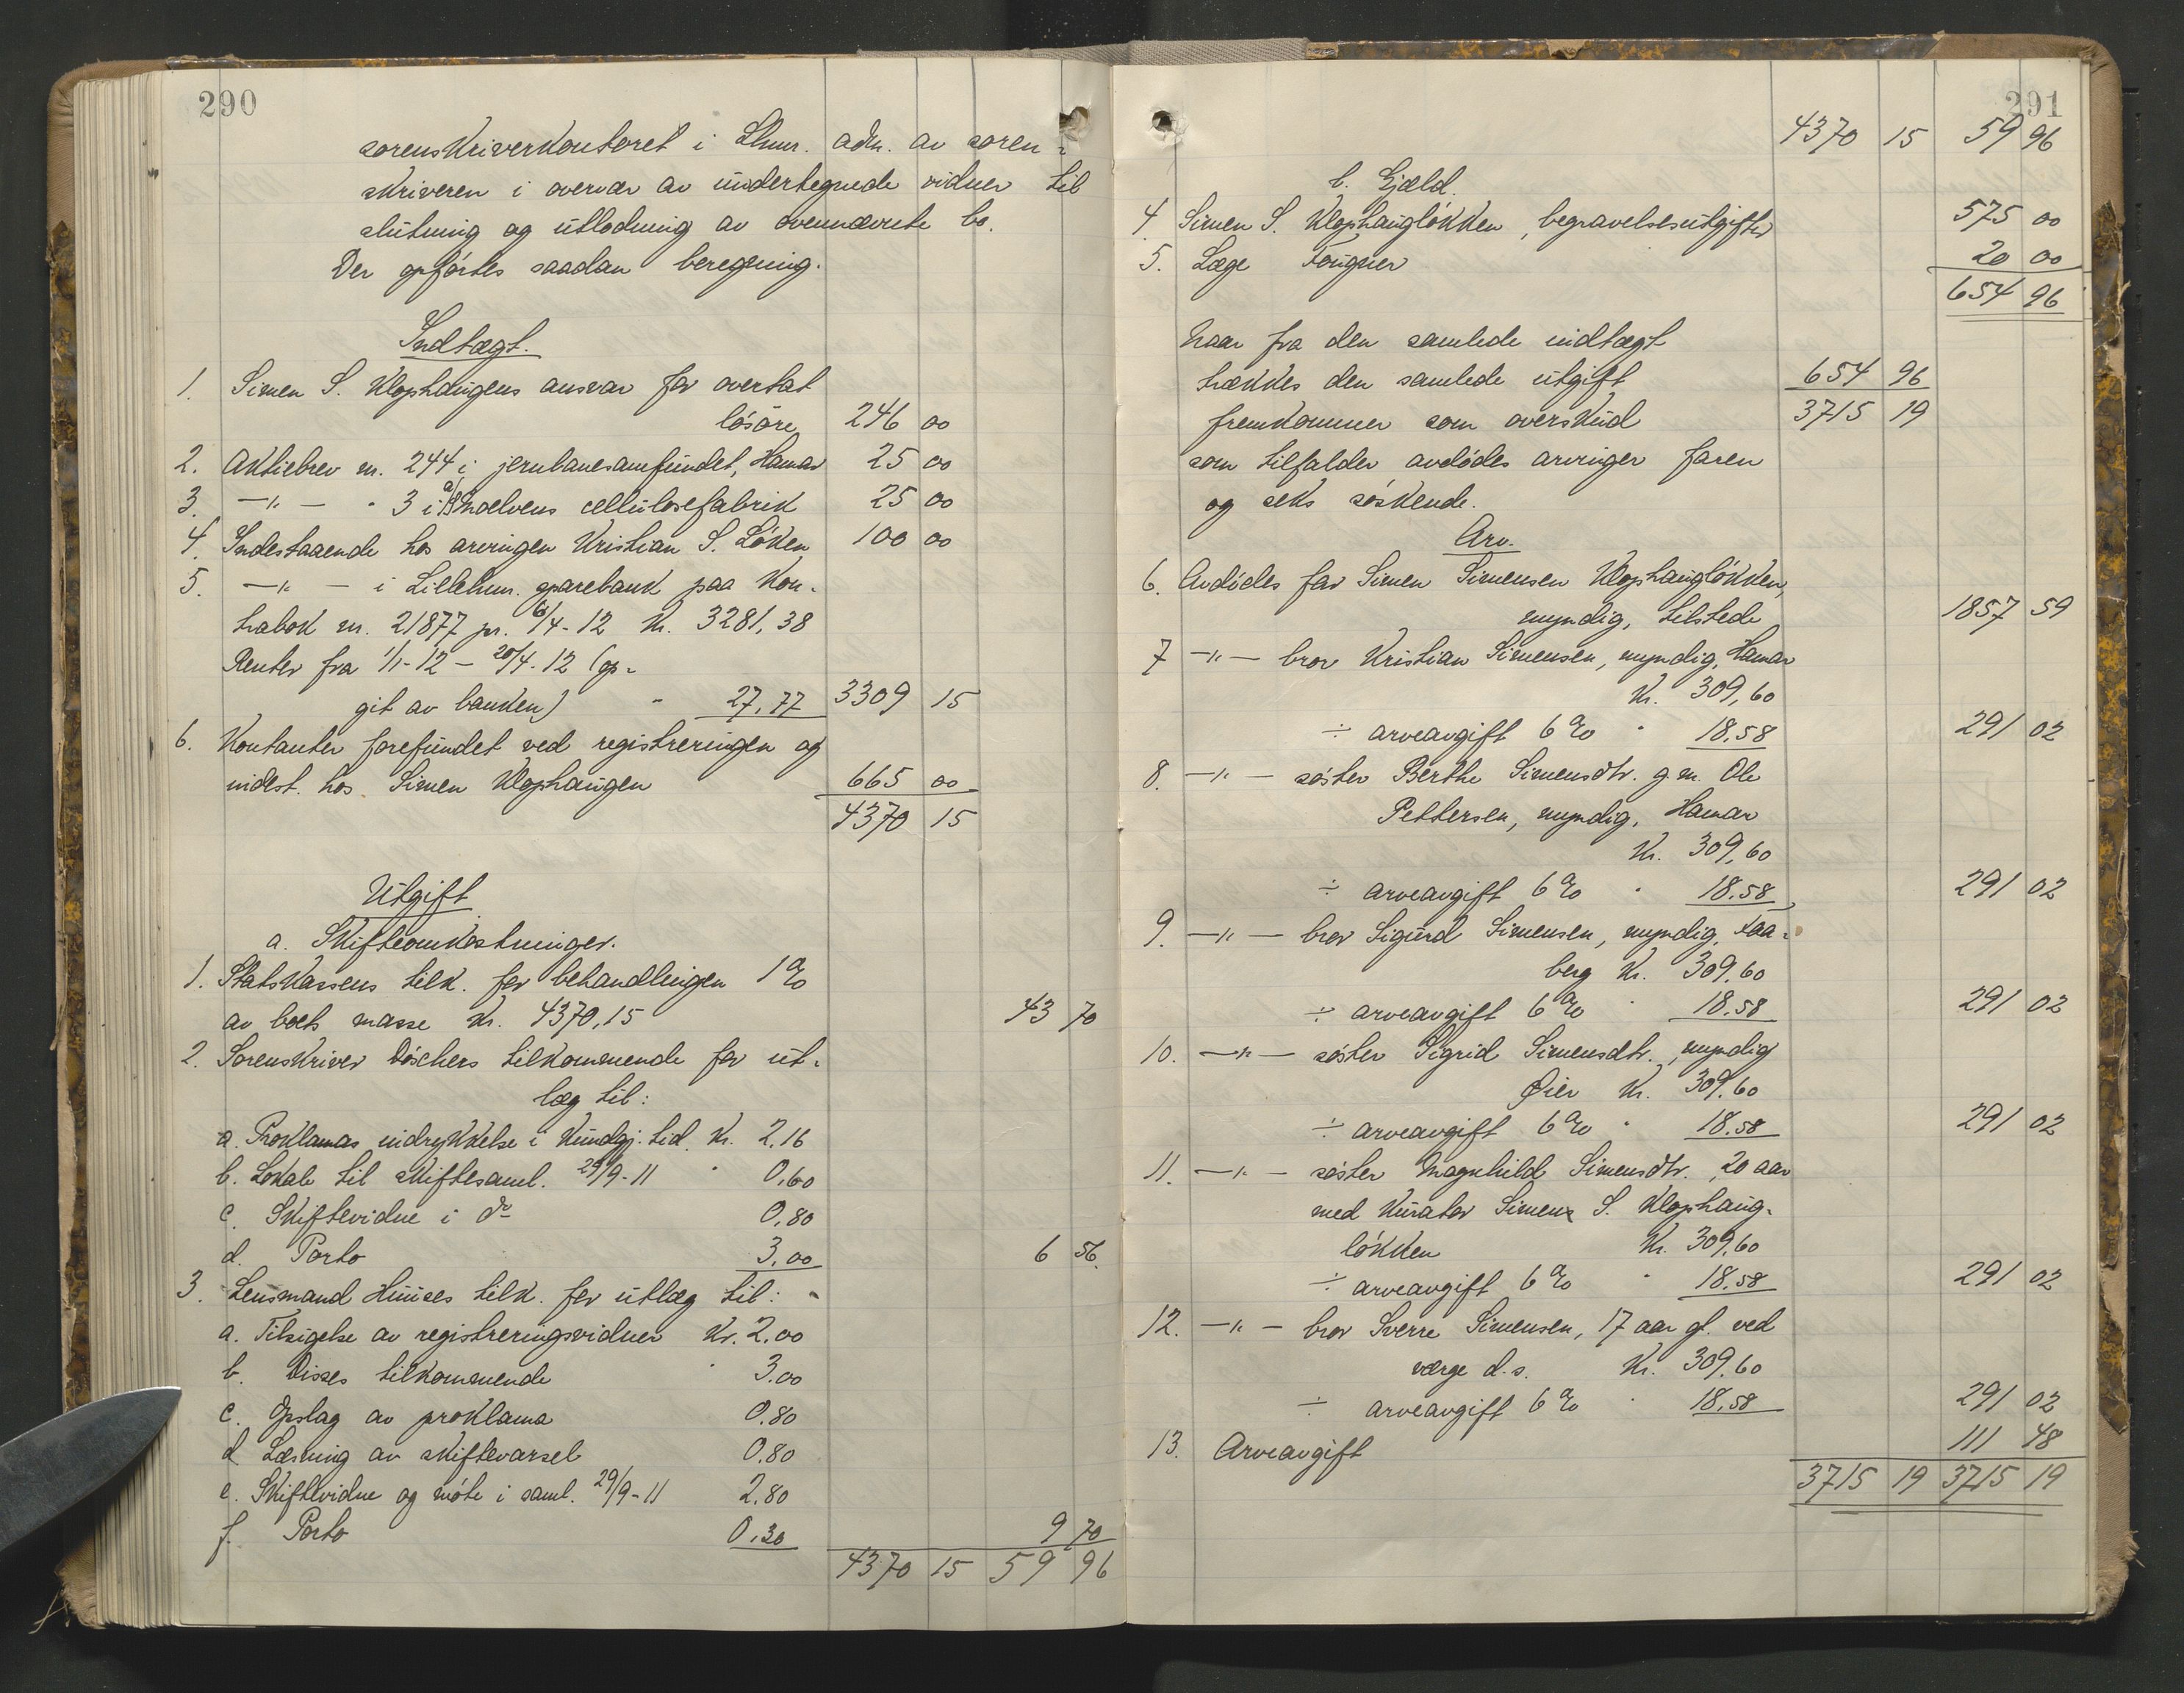 290
sorenskriverkontoret i Lhmr. adm. av soren-
skriveren i overvær av undertegnede vidner til
slutning og utlodning av ovennævnte bo.
Der opførtes saadan beregning.
Indtægt.
1. Simen S. Klophaugens ansvar for overtat
løsøre 246 00
2. Aktiebrev nr. 244 i jernbanesamfundet, Hamar 25 00
3. —"— " 3 i A/S Moelvens cellulosefabrik 25 00
4. Indestaaende hos arvingen Kristian S. Løken 100 00
5. —"— i Lillehm. sparebank paa kon-
trabok nr. 21877 pr. 6/4-12 Kr. 3281,38
Renter fra 1/1-12 – 20/4-12 (op-
git av banken) " 27,77 3309 15
6. Kontanter forefundet ved registreringen og
indest. hos Simen Klophaugen 665 00
4370 15
Utgift
a. Skifteomkostninger.
1. Statskassens tilk. for behandlingen 1 %
av boets masse Kr. 4370,15 43 70
2. Sorenskriver Döschers tilkommende for ut-
læg til:
a. Proklamas indrykkelse i Kundgj. tid. Kr. 2,16
b. Lokale til skiftesaml. 29/9-11 " 0,60
c. Skiftevidne i do 0,80
d. Porto 3,00 6 56.
3. Lensmand Huuses tilk. for utlæg til:
a. Tilsigelse av registreringsvidner Kr. 2.00
b. Disses tilkommende " 3.00
c. Opslag av proklama 0.80
d Læsning av skiftevarsel 0.80
e. Skiftevidne og møte i saml. 29/9-11 2.80
f. Porto 0,30 9 70
4370 15 59 96
291
4370 15 59 96
b. Gjæld.
4. Simen S. Klophaugløkken, begravelsesutgifter 575 00
5. Læge Fougner 20 00
654 96
Naar fra den samlede indtægt
trækkes den samlede utgift 654 96
fremkommer som overskud 3715 19
som tilfalder avdødes arvinger faren
og seks søskende.
Arv.
6. Avdødes far Simen Simensen Klophaugløkken,
myndig, tilstede 1857 59
7 —"— bror Kristian Simensen, myndig, Hamar
Kr. 309,60
÷ arveavgift 6 % " 18.58 291 02
8. —"— søster Berthe Simensdtr. g.m. Ole
Pettersen, myndig, Hamar
Kr. 309,60
÷ arveavgift 6 % " 18.58 291 02
9. —"— bror Sigurd Simensen, myndig, Faa-
berg Kr. 309.60
÷ arveavgift 6 % " 18.58 291 02
10. —"— søster Sigrid Simensdtr., myndig
Øier Kr. 309.60
÷ arveavgift 6 % " 18.58 291 02
11. —"— søster Magnhild Simensdtr., 20 aar
med kurator Simen S. Klophaug-
løkken Kr. 309.60
÷ arveavgift 6 % " 18.58 291 02
12. —"— bror Sverre Simensen, 17 aar gl. ved
værge d.s. Kr. 309.60
÷ arveavgift 6 % " 18.58 291 02
13. Arveavgift 111 48
3715 19 3715 19